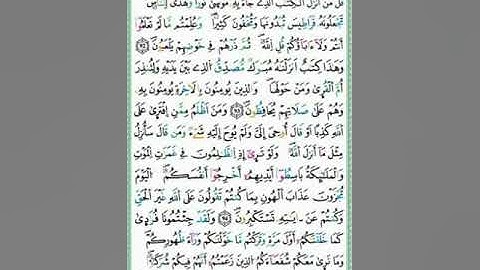 قُلْ مَنَ اَنزَلَ اَ۬لْكِتَٰبَ اَ۬لذِے جَآءَ بِهِۦ مُوس۪ىٰ نُوراٗ وَهُدىٗ لِّلنَّاسِ
تَجْعَلُونَهُۥ قَرَاطِيسَ تُبْدُونَهَا وَتُخْفُونَ كَثِيراٗۖ وَعُلِّمْتُم مَّا لَمْ تَعْلَمُوٓاْ
أَنتُمْ وَلَآ ءَابَآؤُكُمْۖ قُلِ اِ۬للَّهُۖ ثُمَّ ذَرْهُمْ فِے خَوْضِهِمْ يَلْعَبُونَۖ
وَهَٰذَا كِتَٰبٌ اَنزَلْنَٰهُ مُبَٰرَكٞ مُّصَدِّقُ اُ۬لذِے بَيْنَ يَدَيْهِ وَلِتُنذِرَ
أُمَّ اَ۬لْقُر۪ىٰ وَمَنْ حَوْلَهَاۖ وَالذِينَ يُومِنُونَ بِالَاخِرَةِ يُومِنُونَ بِهِۦ
وَهُمْ عَلَىٰ صَلَاتِهِمْ يُحَافِظُونَۖ وَمَنَ اَظْلَمُ مِمَّنِ اِ۪فْتَر۪ىٰ عَلَى
اَ۬للَّهِ كَذِباً اَوْ قَالَ أُوحِيَ إِلَيَّ وَلَمْ يُوحَ إِلَيْهِ شَےْءٞ وَمَن قَالَ سَأُنزِلُ
مِثْلَ مَآ أَنزَلَ اَ۬للَّهُۖ وَلَوْ تَر۪ىٰٓ إِذِ اِ۬لظَّٰلِمُونَ فِے غَمَرَٰتِ اِ۬لْمَوْتِ
وَالْمَلَٰٓئِكَةُ بَاسِطُوٓاْ أَيْدِيهِمُۥٓ أَخْرِجُوٓاْ أَنفُسَكُمُۖ اُ۬لْيَوْمَ
تُجْزَوْنَ عَذَابَ اَ۬لْهُونِ بِمَا كُنتُمْ تَقُولُونَ عَلَى اَ۬للَّهِ غَيْرَ اَ۬لْحَقِّ
وَكُنتُمْ عَنَ اٰيَٰتِهِۦ تَسْتَكْبِرُونَۖ وَلَقَدْ جِئْتُمُونَا فُرَٰد۪ىٰ
كَمَا خَلَقْنَٰكُمُۥٓ أَوَّلَ مَرَّةٖ وَتَرَكْتُم مَّا خَوَّلْنَٰكُمْ وَرَآءَ ظُهُورِكُمْۖ
وَمَا نَر۪ىٰ مَعَكُمْ شُفَعَآءَكُمُ اُ۬لذِينَ زَعَمْتُمُۥٓ أَنَّهُمْ فِيكُمْ شُرَكَٰٓؤُاْۖ